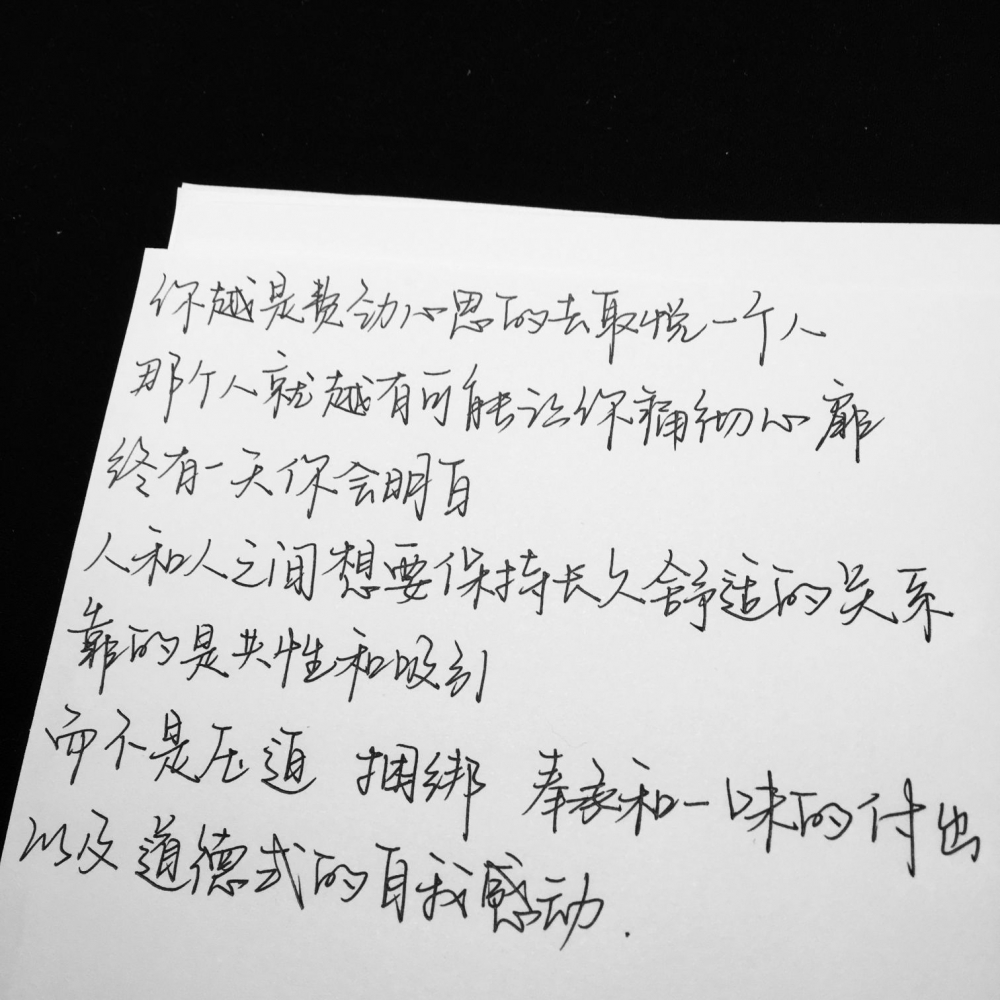 你越是费劲心思的去取悦一个人
那个人就越有可能让你痛彻心扉
终有一天你会明白
人和人之间想要保持长久舒适的关系
靠的是共性和吸引
而不是压迫 捆绑 奉承和一味的付出
以及道德式的自我感动.